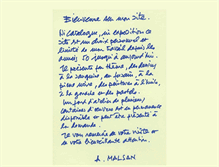 Bienvenue sur mon site.
Ni catalogue, ni exposition ce
site est un choix personnel et
limité de mon travail depuis les
années 50 jusqu'à aujourd'hui.
Il présente par thème, des dessins
à la sanguine, au fusain, à la
pierre noire, des peintures à l'huile
à la gouache ou des pastels.
Un fond d'atelier de plusieurs
centaines d'œuvres est en permanence
disponible et peut être présenté à
la demande.
Je vous remercie de votre visite et
de votre bienveillante attention.
A. MALIAN